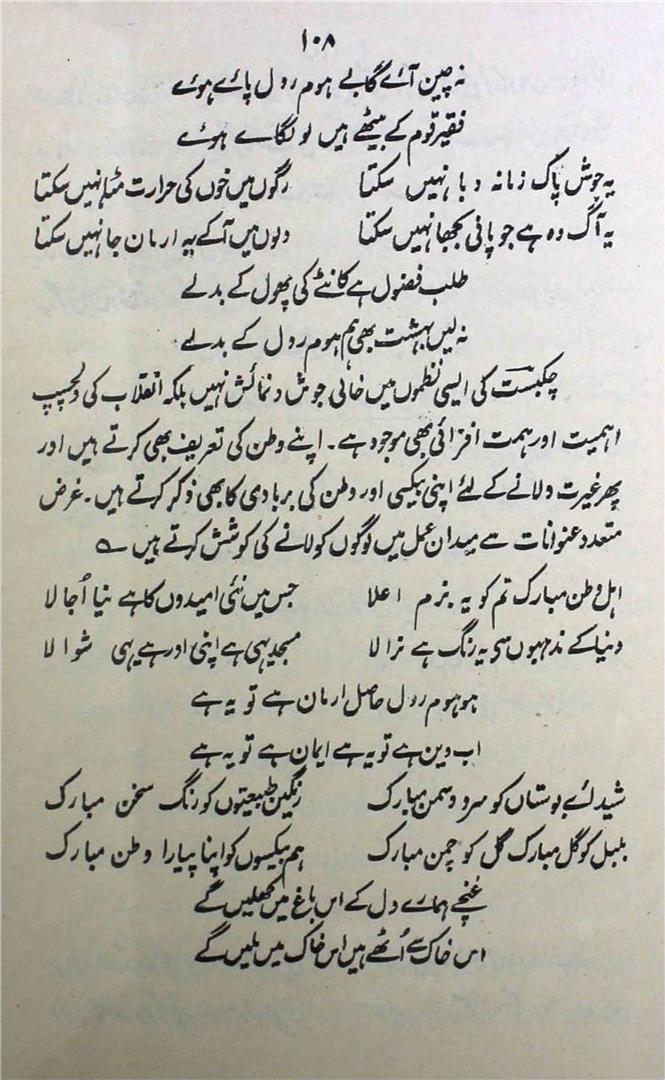 ۱۰۸
نہ چین آئے گا بے ہوم رول پائے ہوئے
فقیر قوم کے بیٹھے ہیں لو لگائے ہوئے
یہ جوش پاک زمانہ دبا نہیں سکتا رگوں میں خوں کی حرارت مٹا نہیں سکتا
یہ آگ وہ ہے جو پانی بجھا نہیں سکتا دلوں میں آکے یہ ارمان جا نہیں سکتا
طلب فضول ہے کانٹے کی پھول کے بدلے
نہ لیں بہشت بھی ہم ہوم رول کے بدلے
چکبست کی ایسی نظموں میں خالی جوش و نمائش نہیں بلکہ انقلاب کی دلچسپ
اہمیت اور ہمت افزائی بھی موجود ہے۔ اپنے وطن کی تعریف بھی کرتے ہیں اور
پھر غیرت دلانے کے لئے اپنی بیکسی اور وطن کی بربادی کا بھی ذکر کرتے ہیں۔ غرض
متعدد عنوانات سے میدان عمل میں لوگوں کو لانے کی کوشش کرتے ہیں ؎
اہل وطن مبارک تم کو یہ بزم اعلا جس میں نئی امیدوں کا ہے نیا اُجالا
دنیا کے مذہبوں سے یہ رنگ ہے نرالا مسجد یہی ہے اپنی اور ہے یہی شوالا
ہو ہوم رول حاصل ارمان ہے تو یہ ہے
اب دین ہے تو یہ ہے ایمان ہے تو یہ ہے
شیدائے بوستاں کو سرو و سمن مبارک رنگین طبیعتوں کو رنگ سخن مبارک
بلبل کو گل مبارک گل کو چمن مبارک ہم بیکسوں کو اپنا پیارا وطن مبارک
غنچے ہمارے دل کے اس باغ میں کھلیں گے
اس خاک سے اُٹھے ہیں اس خاک میں ملیں گے